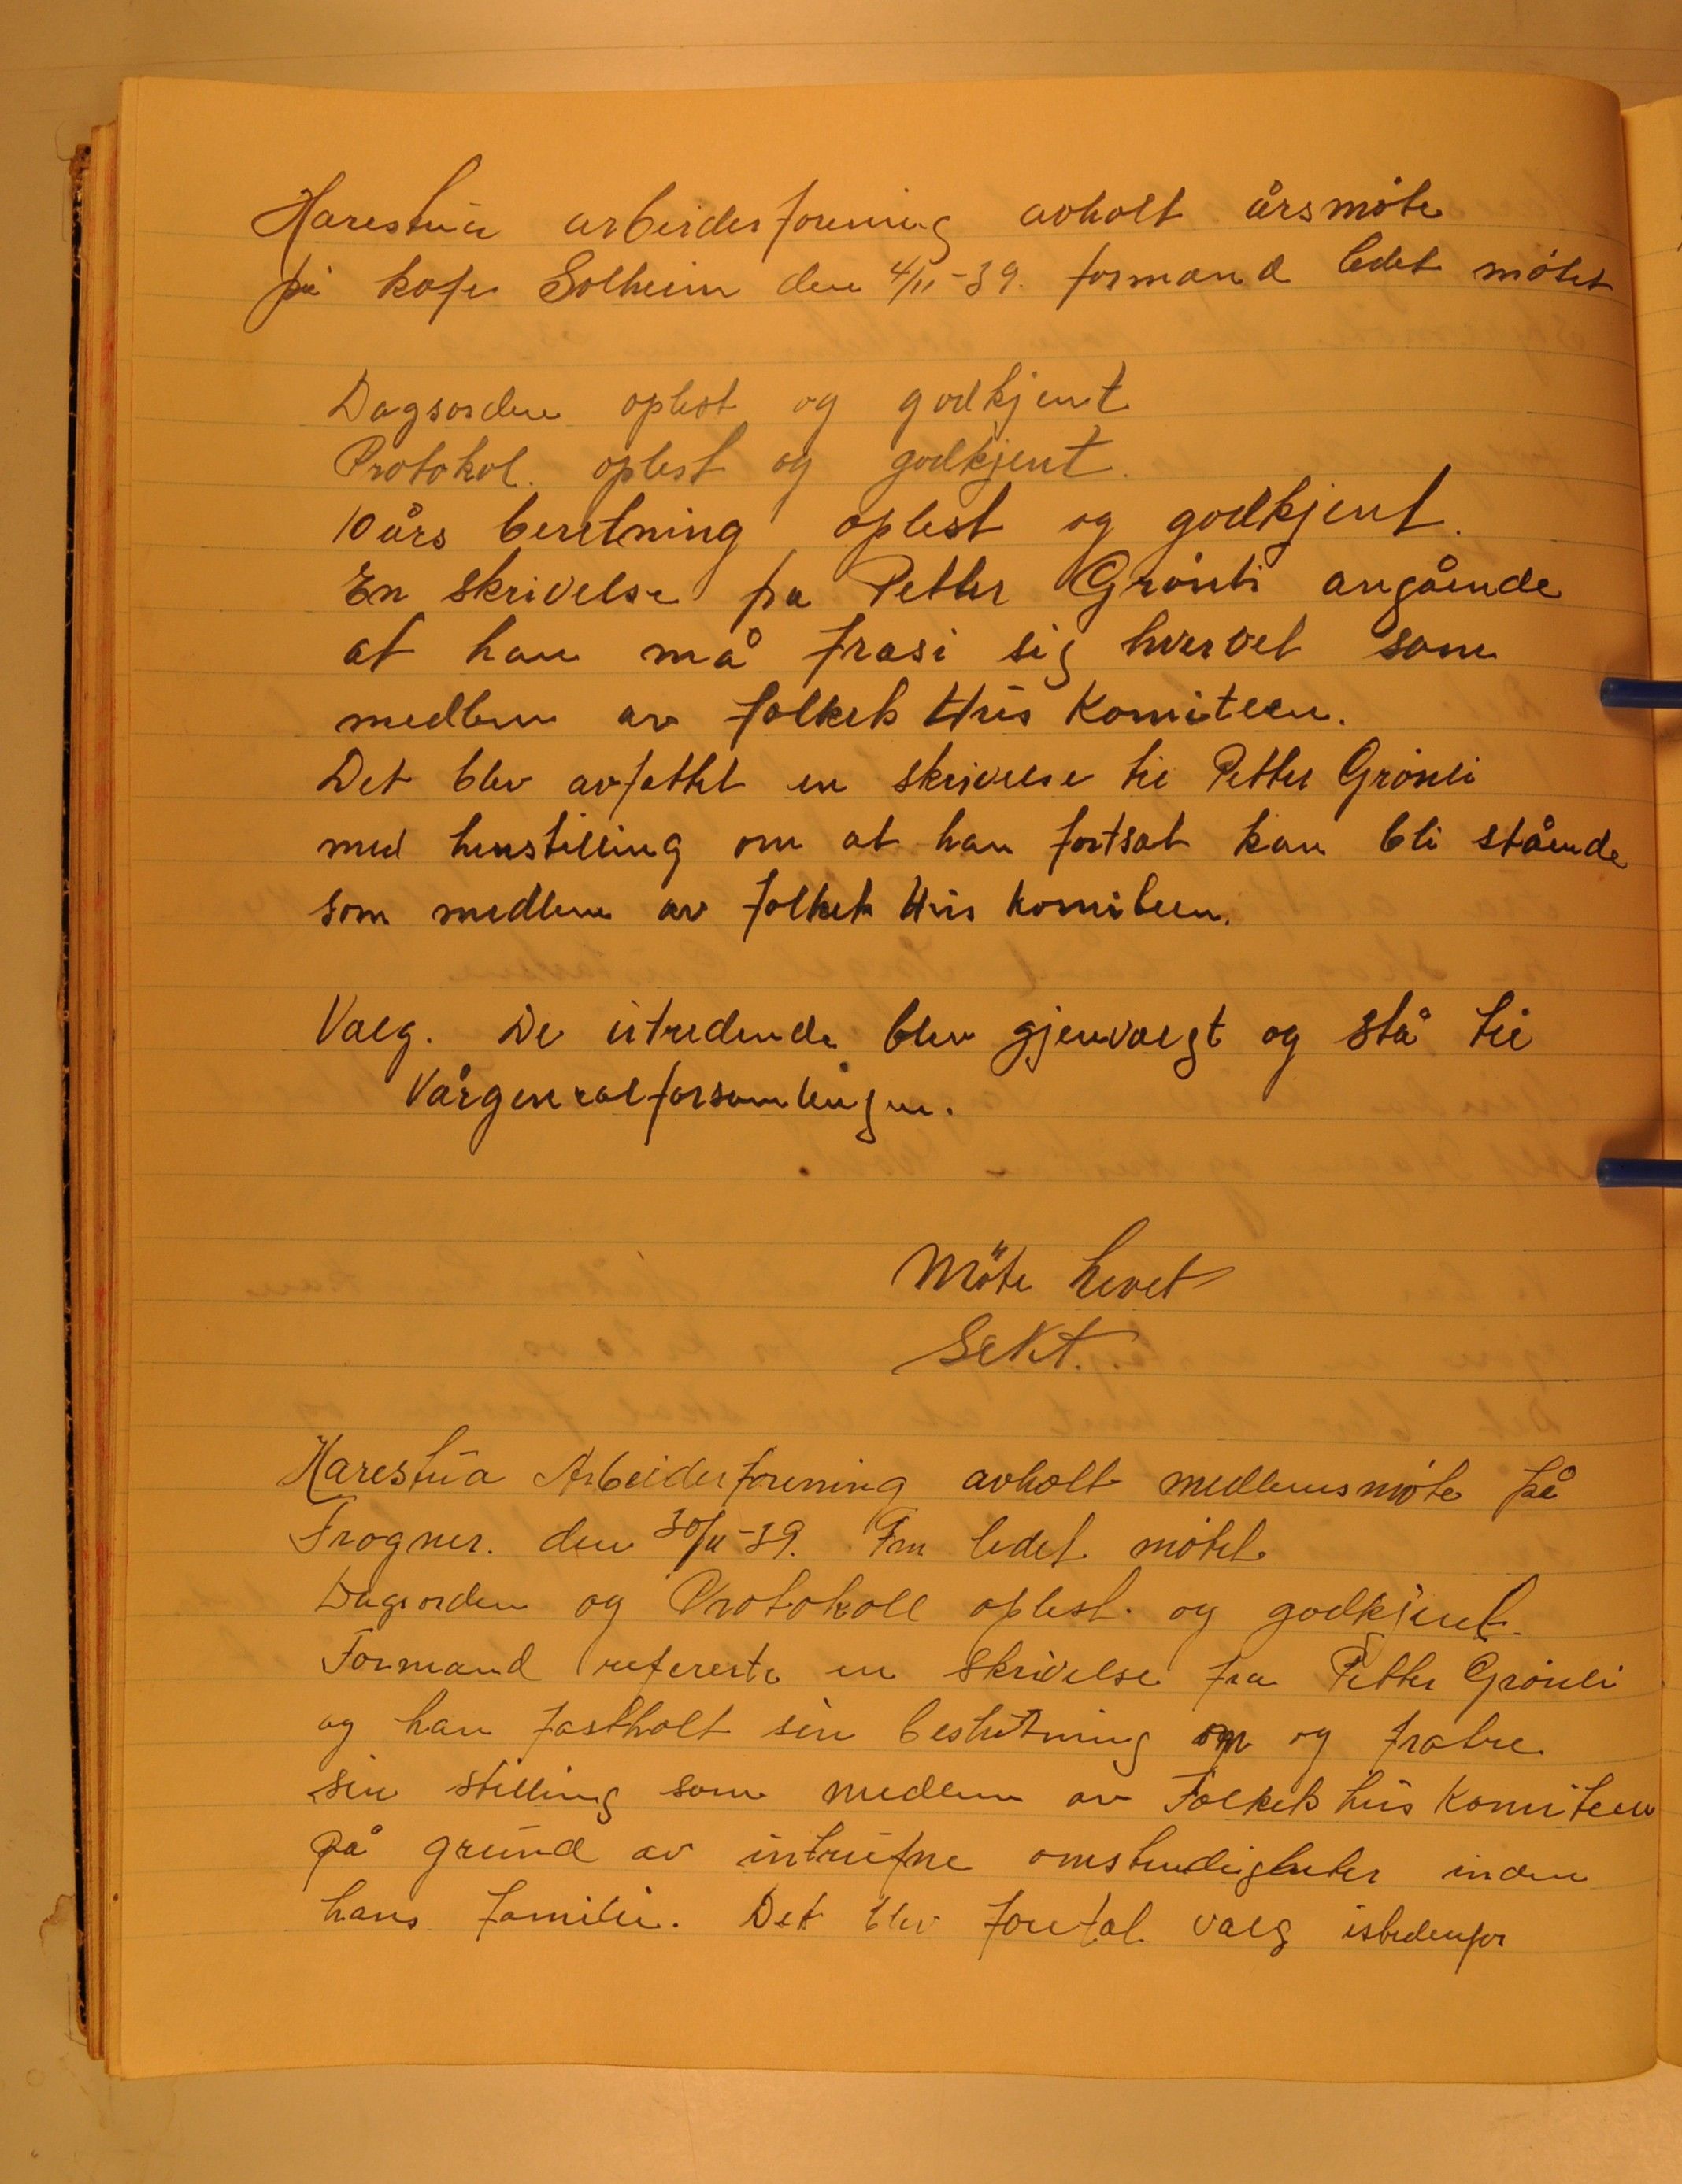 Harestua arbeiderforening avholt årsmøte
på kafe Solheim den 4/11-39. formand ledet møtet
Dagsorden oplest og godkjent
Protokol. oplest og godkjent.
10 års beretning oplest og godkjent.
En skrivelse fra Petter Grønli angående
at han må frasi sig hvervet som
medlem av folkets Hus Komiteen.
Det blev avfattet en skrivelse til Petter Grønli
med henstilling om at han fortsat kan bli stående
som medlem av folkets Hus komiteen.
Valg. De utredende blev gjenvalgt og stå til
Vårgeneralforsamlingen.
Möte hevet
Sekt.
Harestua Arbeiderforening avholt medlemsmøte på
Frogner. den 30/11-39. Fm ledet møtet.
Dagsorden og Protokoll oplest og godkjent.
Formand refererte en skrivelse fra Petter Grønli
og han fastholt sin beslutning om og fratre
sin stilling som medlem av Folkets hus Komiteen
på grund av intrufne omstendigheter inden
hans familie. Det blev foretat valg istedenfor